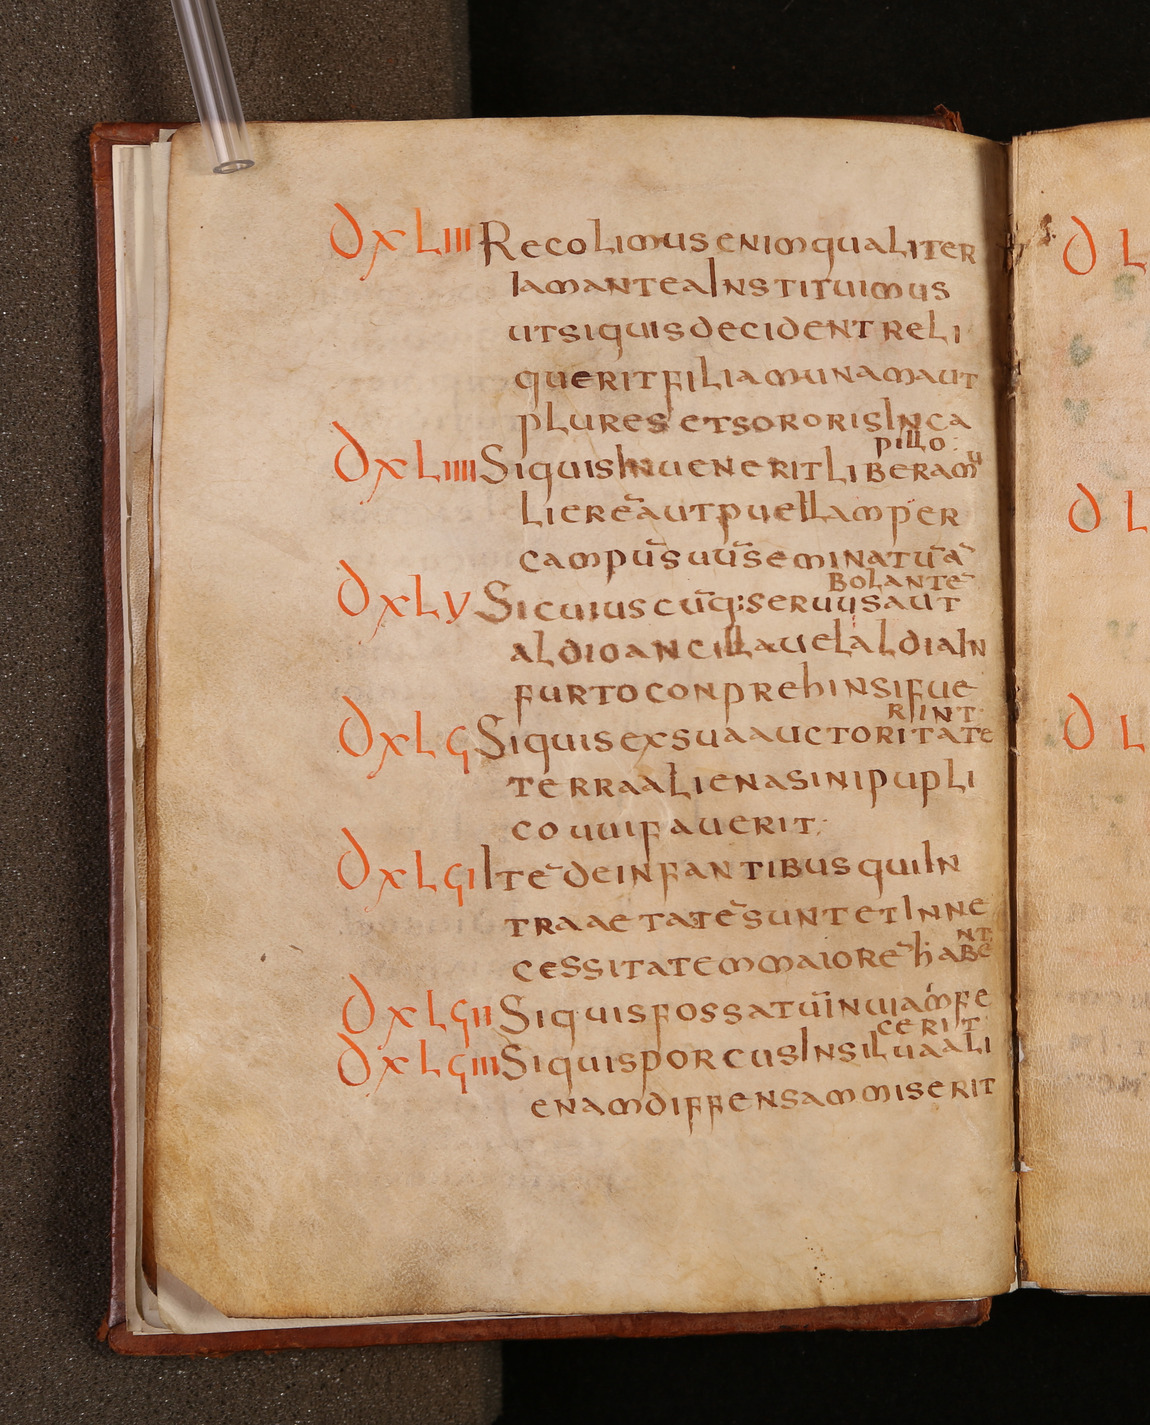 DXLIII Recolimus enim qualiter
Iamantea Instituimus
ut siquis decident reli
querit filiam unam aut
plures et sororis Inca
pillo:
DXLIIII Siquis Inuenerit liberam mu
liere̅ aut puellam per
campu̅ suu̅ seminatu̅ a̅
bolante̅
DXLV Si cuiuscu̅q: seruus aut
aldio ancilla uel aldia In
furto conprehinsi fue
rint
DXLϚ Siquis ex sua auctoritate
terra aliena sini pupli
co uuifauerit;
DXLϚI Ite̅ de infantibus qui In
tra aetate̅ sunt et In ne
cessitatem maiore̅ habe
nt
DXLϚII Siquis fossatu̅ in uiam fe
cerit
DXLϚIII Siquis porcus In silua ali
enam diffensam miserit
D L
D L
D L